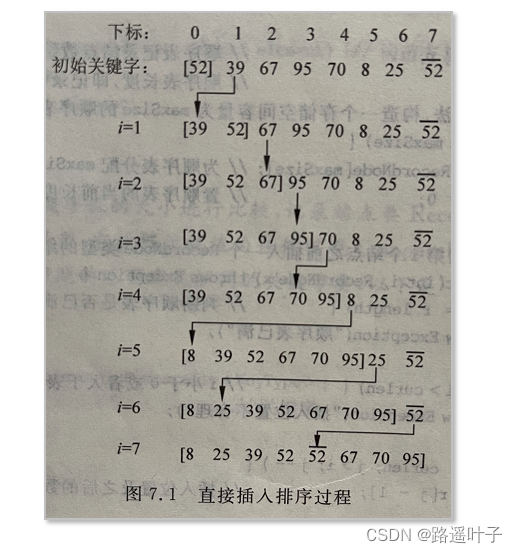 下标: 0 1 2 3 4 5 6 7
初始关键字: [52] 39 67 95 70 8 25 5̅2̅
i=1 [39 52] 67 95 70 8 25 5̅2̅
i=2 [39 52 67] 95 70 8 25 5̅2̅
i=3 [39 52 67 95] 70 8 25 5̅2̅
i=4 [39 52 67 70 95] 8 25 5̅2̅
i=5 [8 39 52 67 70 95] 25 5̅2̅
i=6 [8 25 39 52 67 70 95] 5̅2̅
i=7 [8 25 39 52 5̅2̅ 67 70 95]
图 7.1 直接插入排序过程
CSDN @路遥叶子